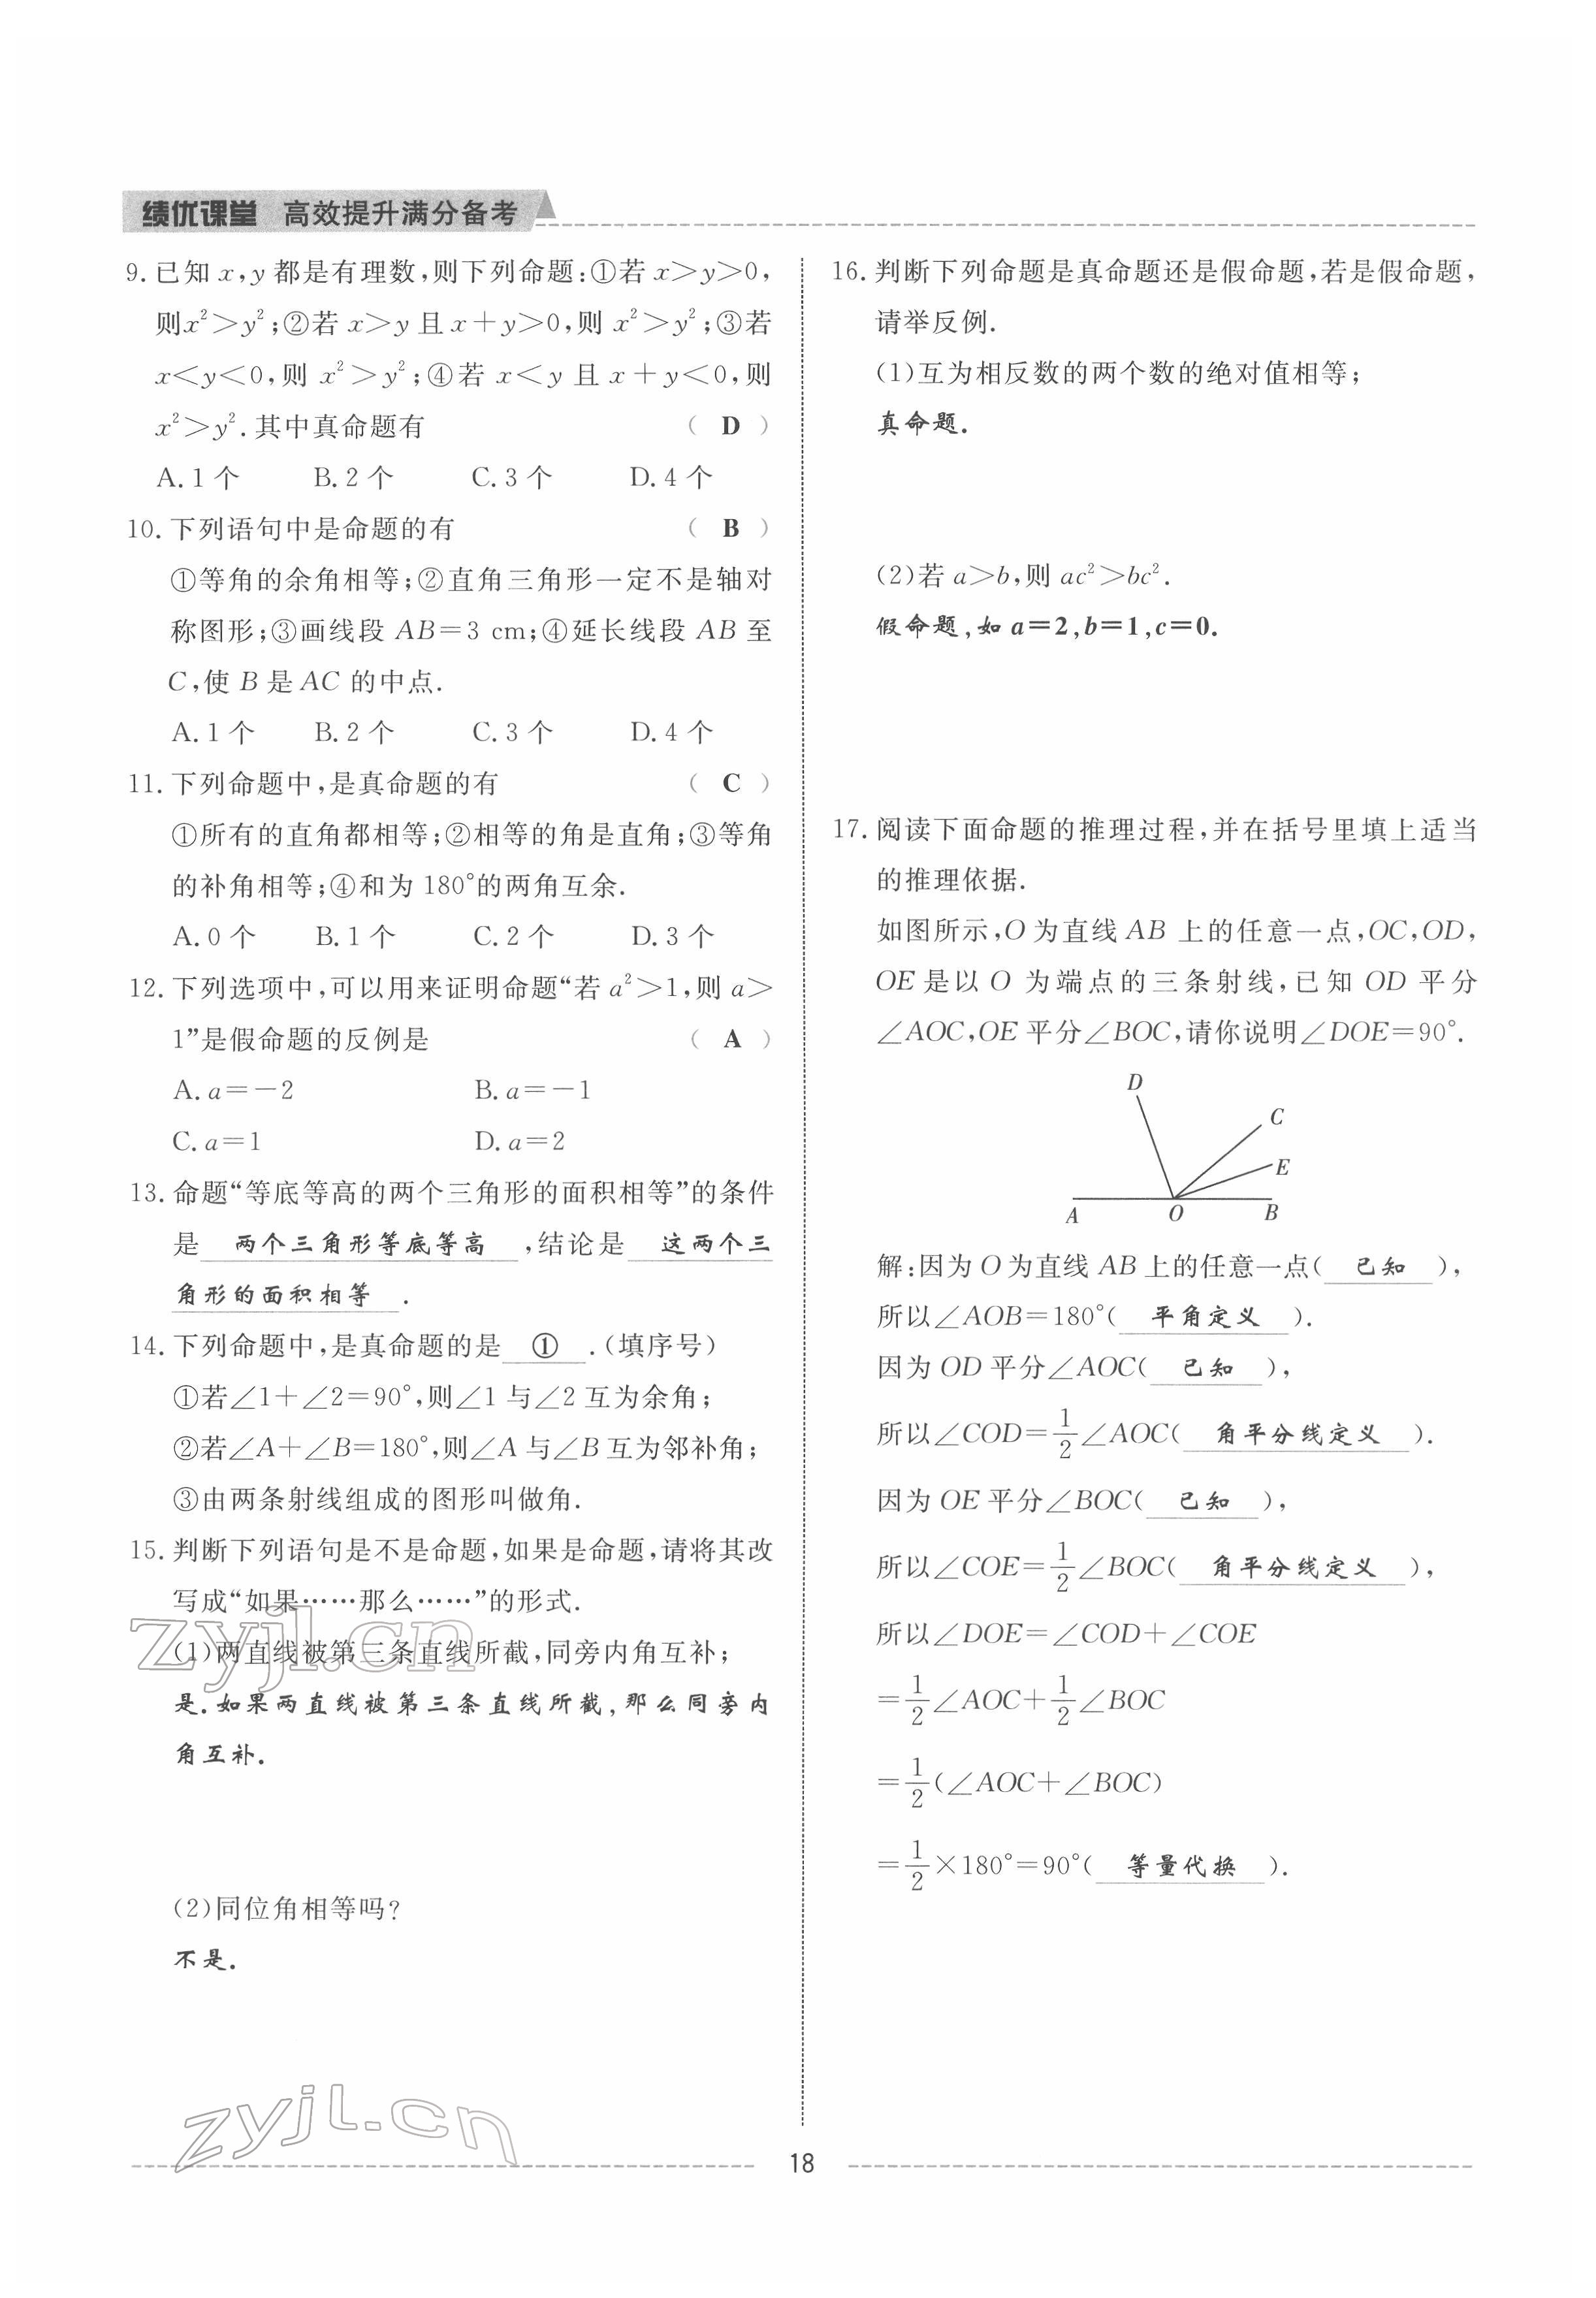 绩优课堂 高效提升满分备考
9. 已知 x,y 都是有理数,则下列命题:①若 x>y>0,
则x²>y²;②若 x>y 且 x+y>0,则 x²>y²;③若
x<y<0,则 x²>y²;④若 x<y 且 x+y<0,则
x²>y².其中真命题有 ( D )
A.1个 B.2个 C.3个 D.4个
10. 下列语句中是命题的有 ( B )
①等角的余角相等;②直角三角形一定不是轴对
称图形;③画线段 AB=3 cm;④延长线段 AB 至
C,使 B 是 AC 的中点.
A.1个 B.2个 C.3个 D.4个
11. 下列命题中,是真命题的有 ( C )
①所有的直角都相等;②相等的角是直角;③等角
的补角相等;④和为 180°的两角互余.
A.0个 B.1个 C.2个 D.3个
12. 下列选项中,可以用来证明命题“若 a²>1,则 a>
1”是假命题的反例是 ( A )
A. a=-2 B. a=-1
C. a=1 D. a=2
13. 命题“等底等高的两个三角形的面积相等”的条件
是 两个三角形等底等高 ,结论是 这两个三
角形的面积相等 .
14. 下列命题中,是真命题的是 ① .(填序号)
①若∠1+∠2=90°,则∠1 与∠2 互为余角;
②若∠A+∠B=180°,则∠A 与∠B 互为邻补角;
③由两条射线组成的图形叫做角.
15. 判断下列语句是不是命题,如果是命题,请将其改
写成“如果……那么……”的形式.
(1)两直线被第三条直线所截,同旁内角互补;
是.如果两直线被第三条直线所截,那么同旁内
角互补.
(2)同位角相等吗?
不是.
16. 判断下列命题是真命题还是假命题,若是假命题,
请举反例.
(1)互为相反数的两个数的绝对值相等;
真命题.
(2)若 a>b,则 ac²>bc².
假命题,如 a=2,b=1,c=0.
17. 阅读下面命题的推理过程,并在括号里填上适当
的推理依据.
如图所示,O 为直线 AB 上的任意一点,OC,OD,
OE 是以 O 为端点的三条射线,已知 OD 平分
∠AOC,OE 平分∠BOC,请你说明∠DOE=90°.
D
C
E
A O B
解:因为 O 为直线 AB 上的任意一点( 已知 ),
所以∠AOB=180°( 平角定义 ).
因为 OD 平分∠AOC( 已知 ),
所以∠COD=1/2∠AOC( 角平分线定义 ).
因为 OE 平分∠BOC( 已知 ),
所以∠COE=1/2∠BOC( 角平分线定义 ),
所以∠DOE=∠COD+∠COE
=1/2∠AOC+1/2∠BOC
=1/2(∠AOC+∠BOC)
=1/2×180°=90°( 等量代换 ).
zyjl.cn
zyjl.cn
18